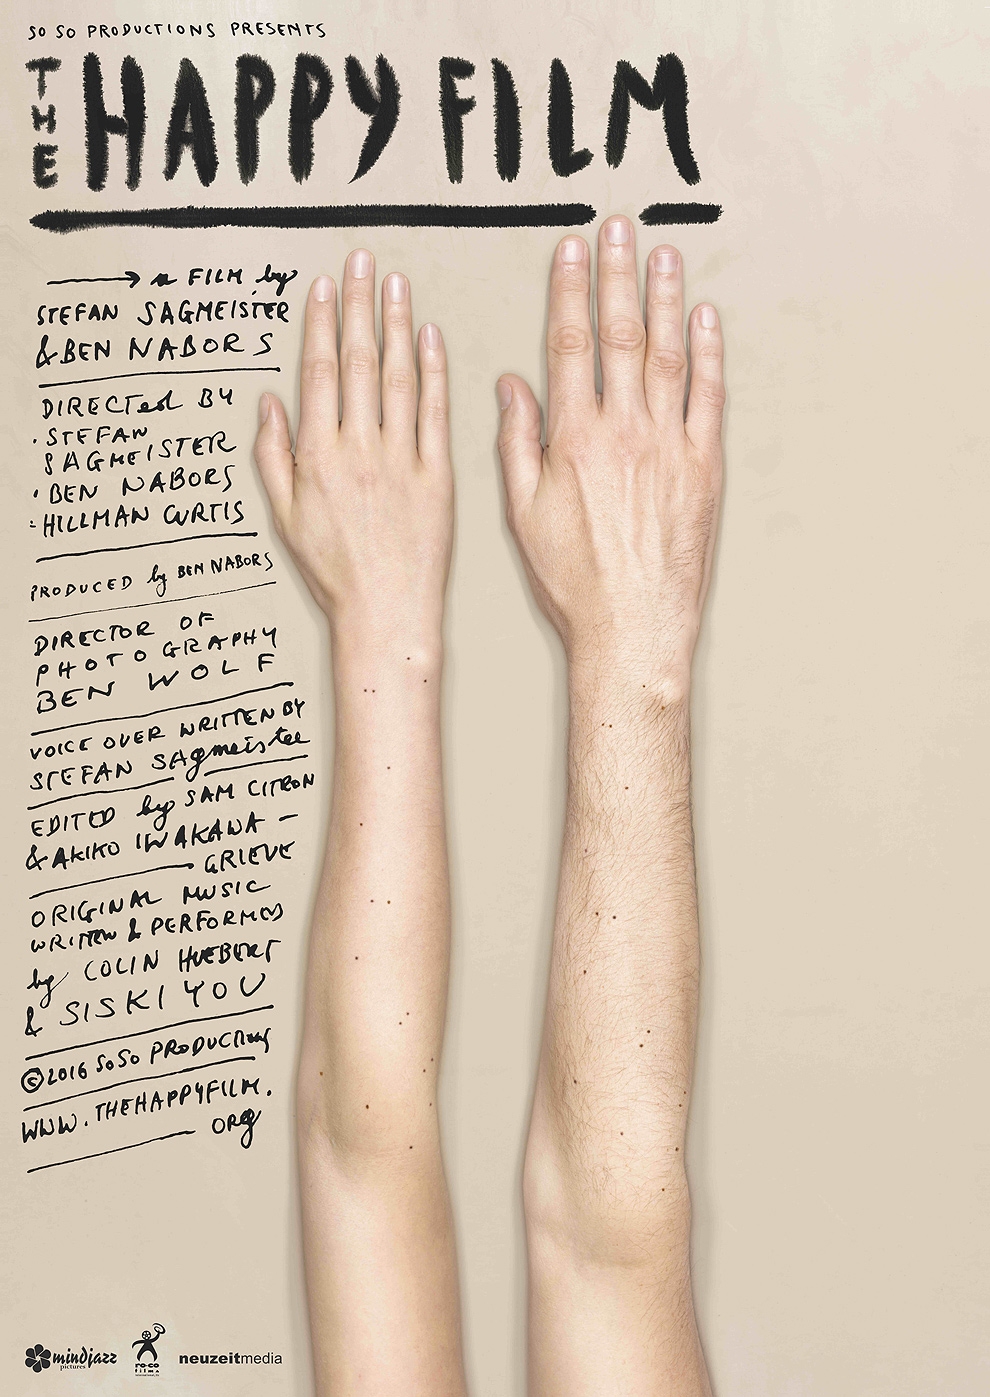 SO SO PRODUCTIONS PRESENTS
THE HAPPY FILM
a FILM by
STEFAN SAGMEISTER
& BEN NABORS
DIRECTed BY
· STEFAN
SAGMEISTER
· BEN NABORS
: HILLMAN CURTIS
PRODUCED by BEN NABORS
DIRECTOR OF
PHOTOGRAPHY
BEN WOLF
VOICE OVER WRITTEN BY
STEFAN SAgmeister
EDITED by SAM CITRON
& AKIKO IWAKAWA –
GRIEVE
ORIGINAL MUSIC
WRITTEN & PERFORMED
by COLIN HUEBERT
& SISKIYOU
©2016 SoSo PRODUCTIons
WWW.THEHAPPYFILM.
ORg
mindjazz
pictures
ro*co
films
neuzeitmedia